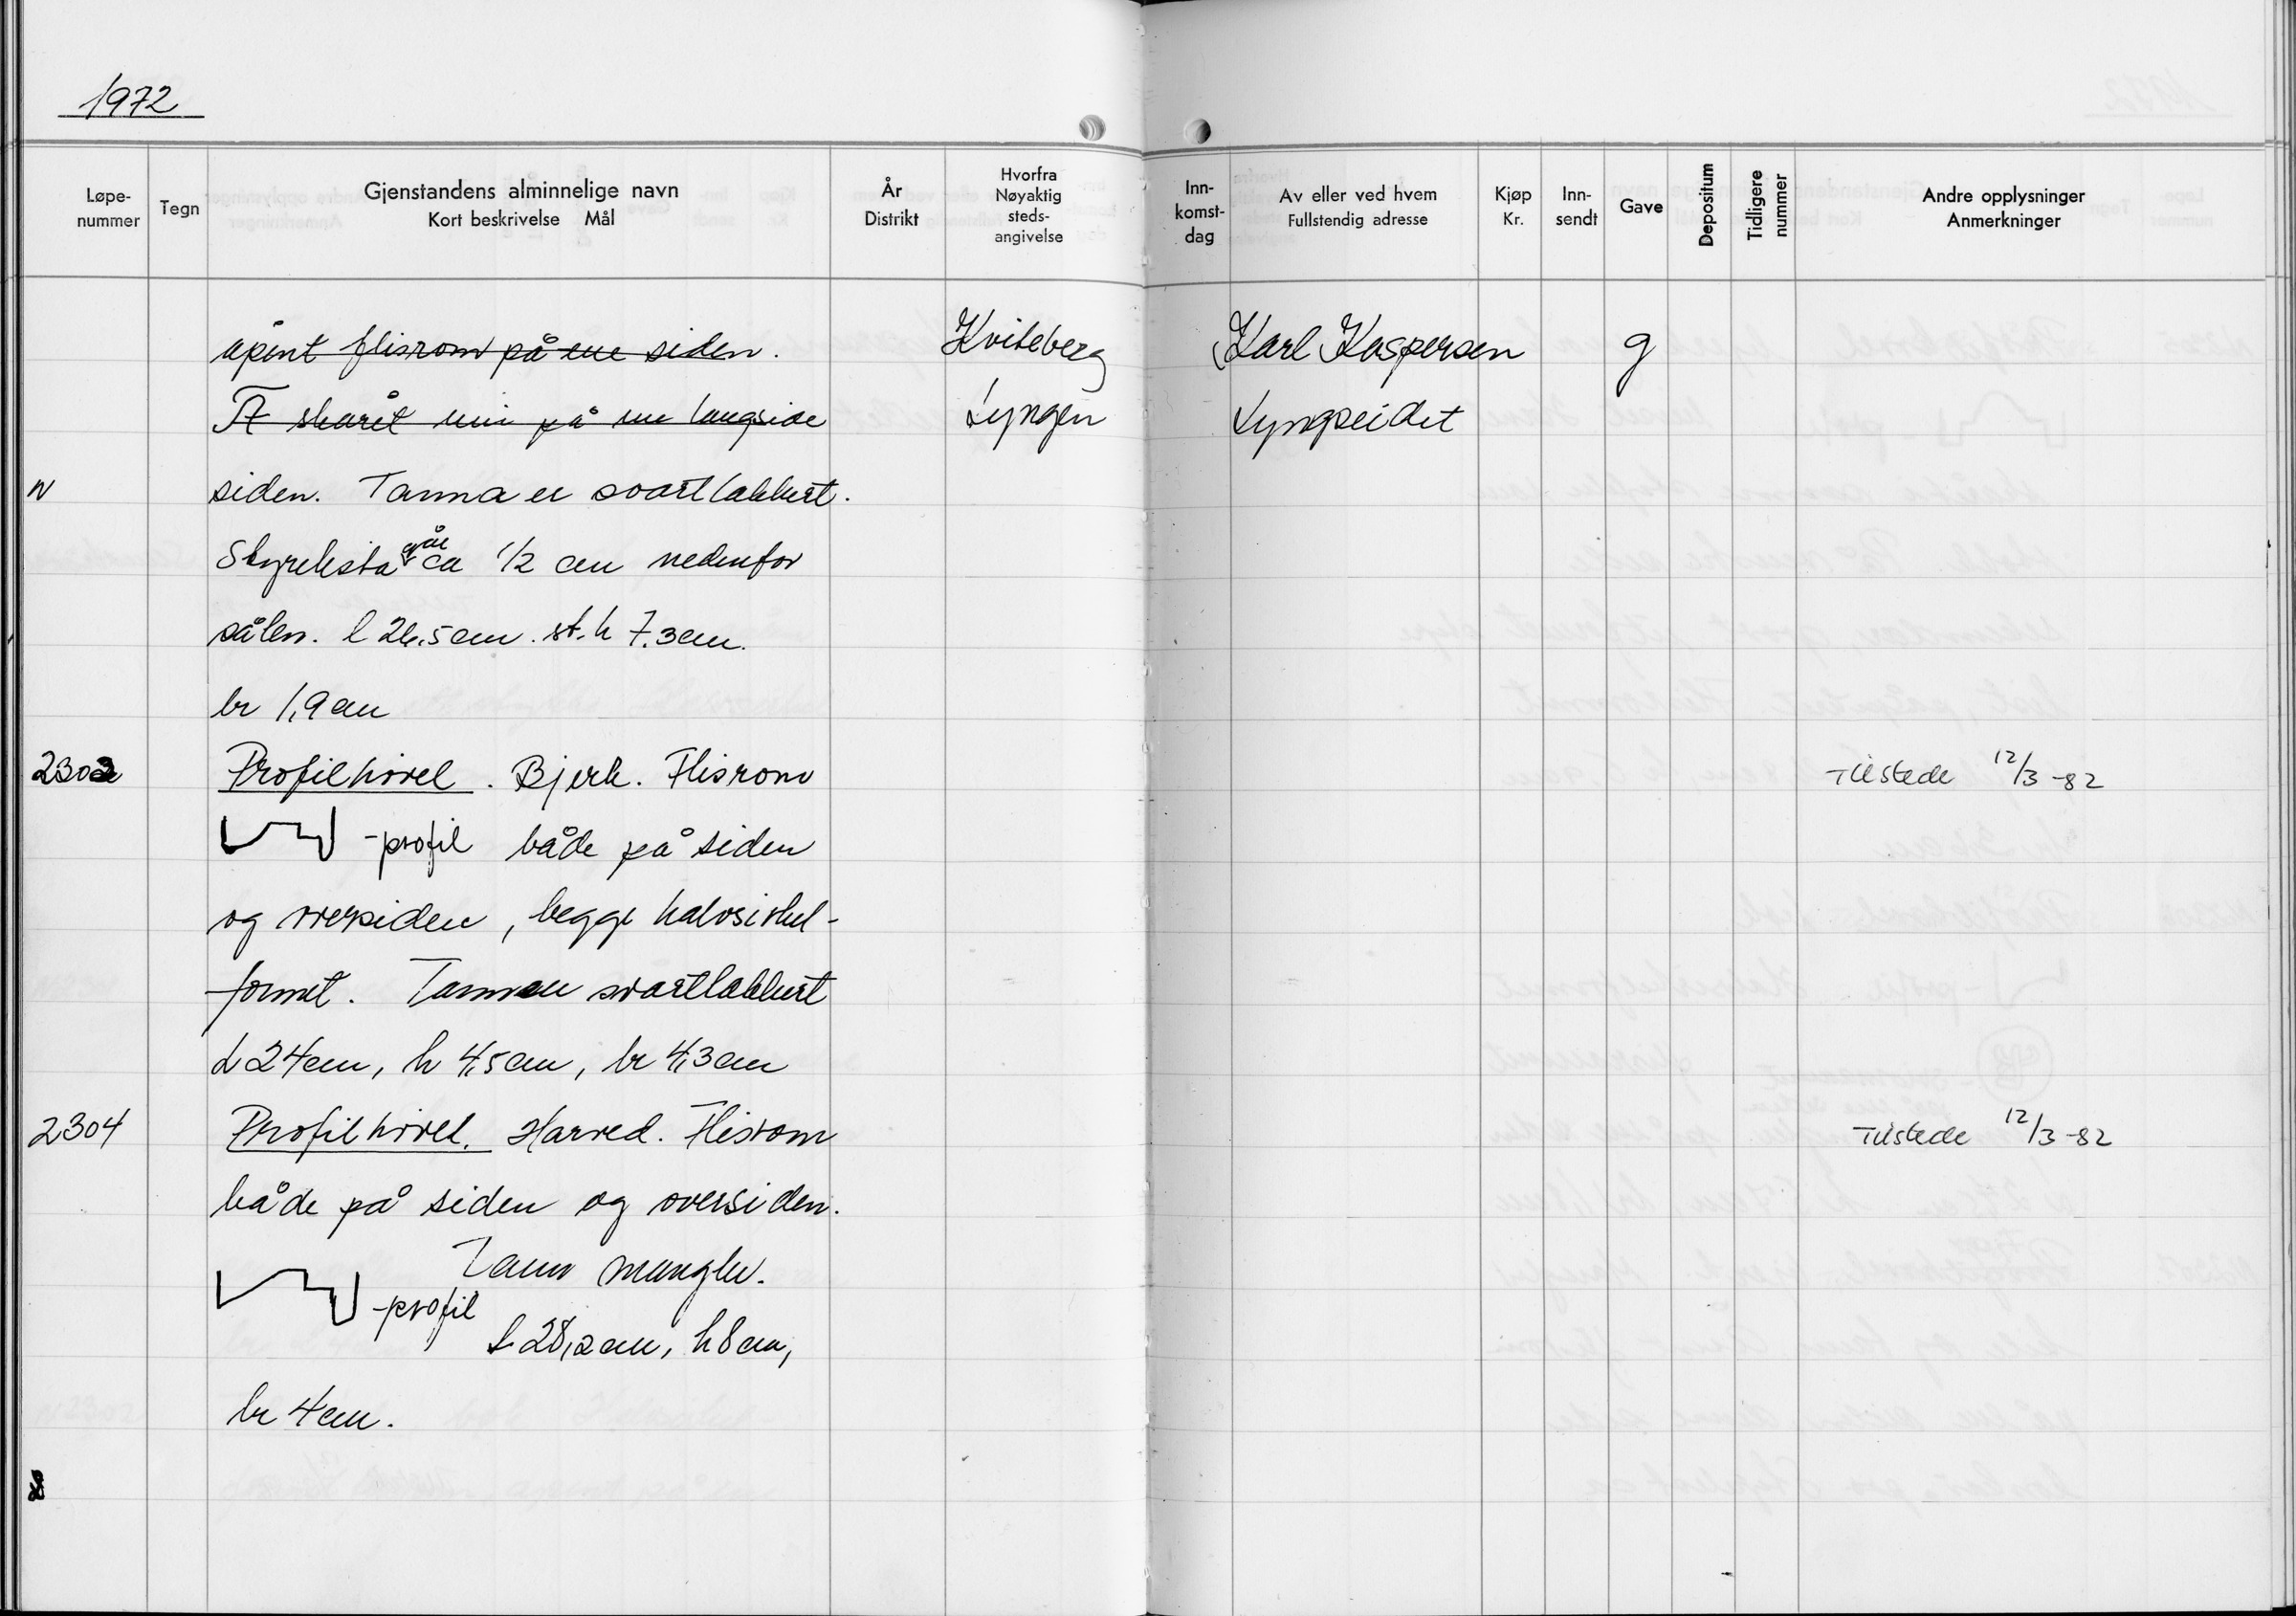 1972
Løpe-nummer Tegn Gjenstandens alminnelige navn Kort beskrivelse Mål År Distrikt Hvorfra Nøyaktig steds-angivelse Inn-komst-dag Av eller ved hvem Fullstendig adresse Kjøp Kr. Inn-sendt Gave Depositum Tidligere nummer Andre opplysninger Anmerkninger
åpent flisrom på ene siden. Kviteberg Karl Kaspersen g
skåret inn på ene langside Lyngen Lyngseidet
N siden. Tanna er svartlakkert.
Styrelista går ca 1/2 cm nedenfor
sålen. l 26.5 cm. st. h 7.3 cm.
br 1,9 cm
2303 Profilhøvel. Bjerk. Flisrom Tilstede 12/3-82
-profil både på siden
og oversiden, begge halvsirkel-
formet. Tannen svartlakkert
L 24 cm, h 4,5 cm, br 4,3 cm
2304 Profilhøvel. Harved. Flisrom Tilstede 12/3-82
både på siden og oversiden.
Tann mangler.
-profil
L 28,2 cm, h 8 cm,
br 4 cm.